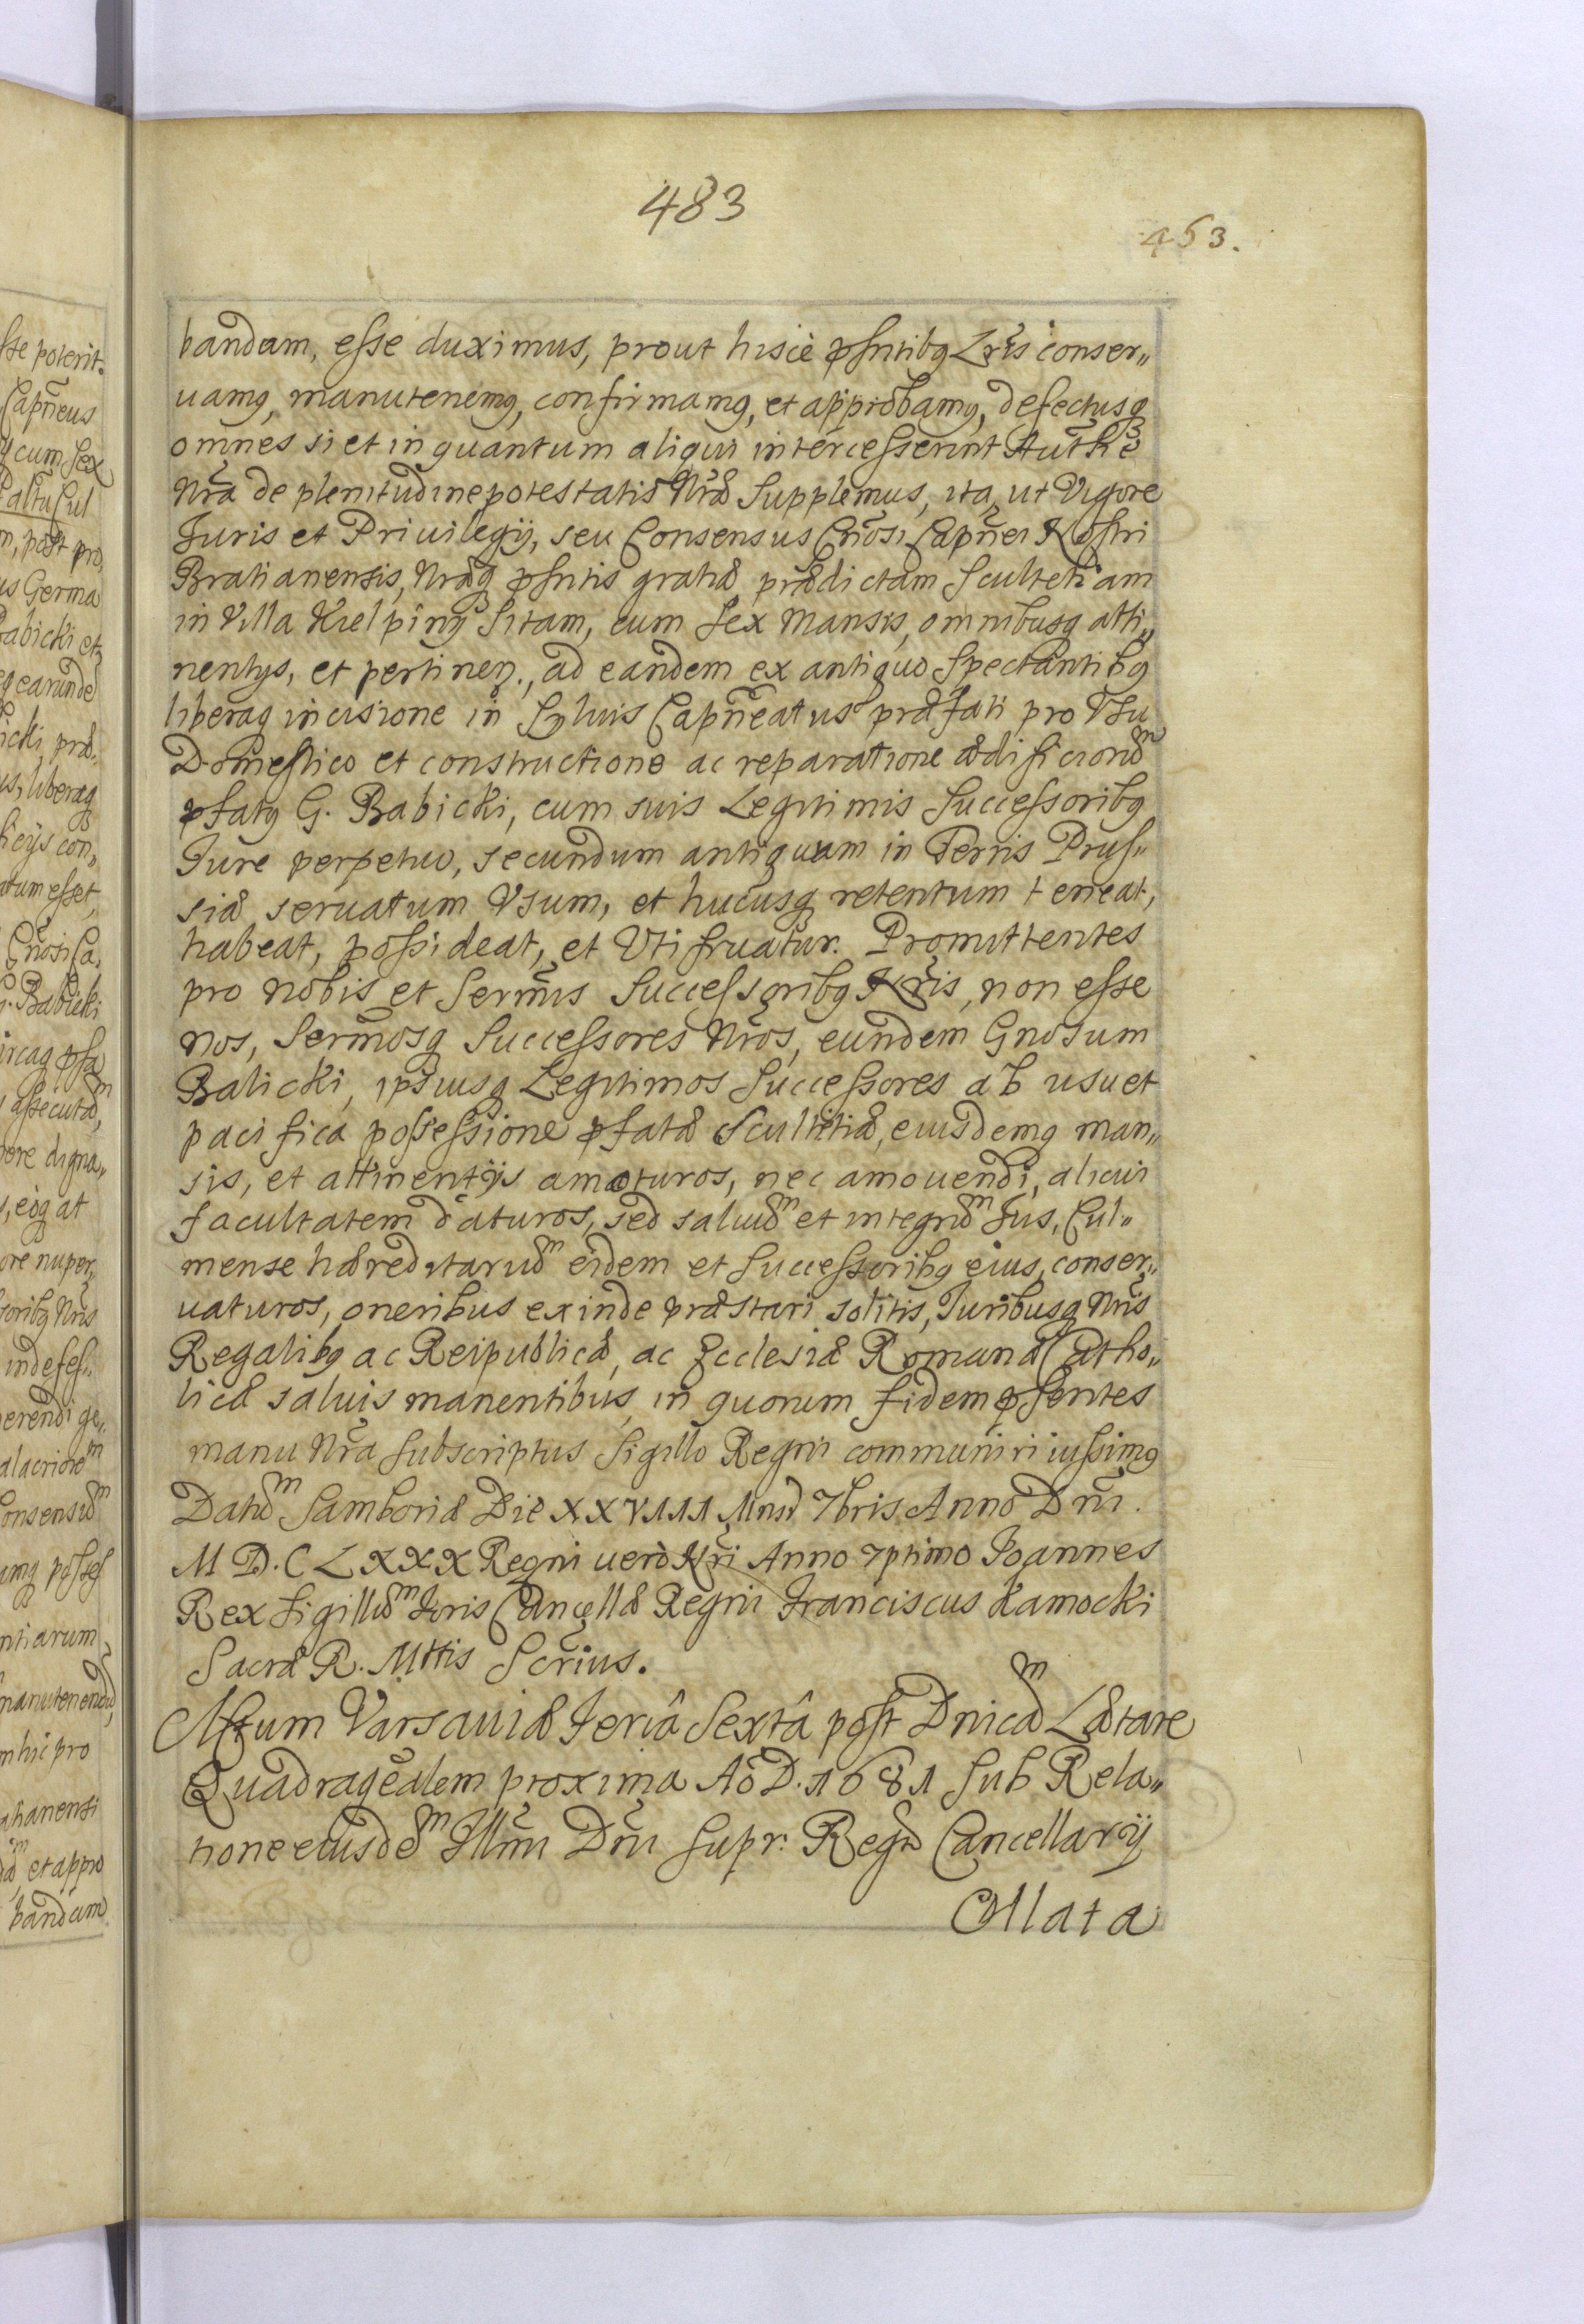 483
453.
bandam, esse duximus, prout hisce pſntibq Lr̃is conser„
uamq, manutenemq, confirmamq, et approbamq, defectusq
omnes si et in quantum aliqui intercesserint Auth̃e
Nr̃a de plenitudine potestatis Nræ Supplemus, ita, ut Vigore
Iuris et Priuilegij, seu Consensus Gñosi Capñei Nostri
Bratianensis, Nræq pſntis gratiæ prædictam Scultetiam
in Villa Kielpiny Sitam, cum Sex Mansis, omnibusq atti„
nentijs, et pertinen., ad eandem ex antiquo Spectantibq
liberaq incisione in Syluis Capñeatus præfati pro Vsu
Domestico et constructione ac reparatione ædificiorũm
pfatq G. Babicki, cum suis Legitimis Successoribq
Iure perpetuo, secundum antiquum in Terris Prus„
siæ seruatum Vsum, et hucusq retentum teneat,
habeat, possideat, et Vti fruatur. Promittentes
pro nobis et Serm̃is Successoribq Nr̃is, non esse
nos, Serm̃osq Successores Nr̃os, eundem Gnosum
Balicki, ipsiusq Legitimos Successores ab usu et
pacifica possessione pfatæ Scultetiæ, eiusdemq man„
sis, et attinentijs amoturos, nec amouendi, alicui
facultatem daturos, sed saluũm et integrũm Ius, Cul„
mense hæreditariũm eidem et Successoribq eius, conser„
uaturos, oneribus exinde præstari solitis, Iuribusq Nr̃is
Regalibq ac Reipublicæ, ac Ecclesiæ Romanæ Catho„
licæ saluis manentibus, in quorum fidem pſentes
manu Nr̃a Subscriptas Sigillo Regni communiri iussimq
Datũm Samboriæ Die XXVIII Mnsis 7bris Anno Dñi.
M D.C LXXX Regni uero Nr̃i Anno 7ptimo Joannes
Rex Sigillũm Joris Cancellæ Regni Franciscus Kamocki
Sacræ R. Mttis Scr̃ius.
Actum Varsauiæ Feriâ Sextâ post Dnicãm Lætare
Quadragẽalem proxima Aõ D. 1681 Sub Rela„
tione eiusdẽm Illm̃i Dñi Supr. Regñ Cancellarij
Ollata